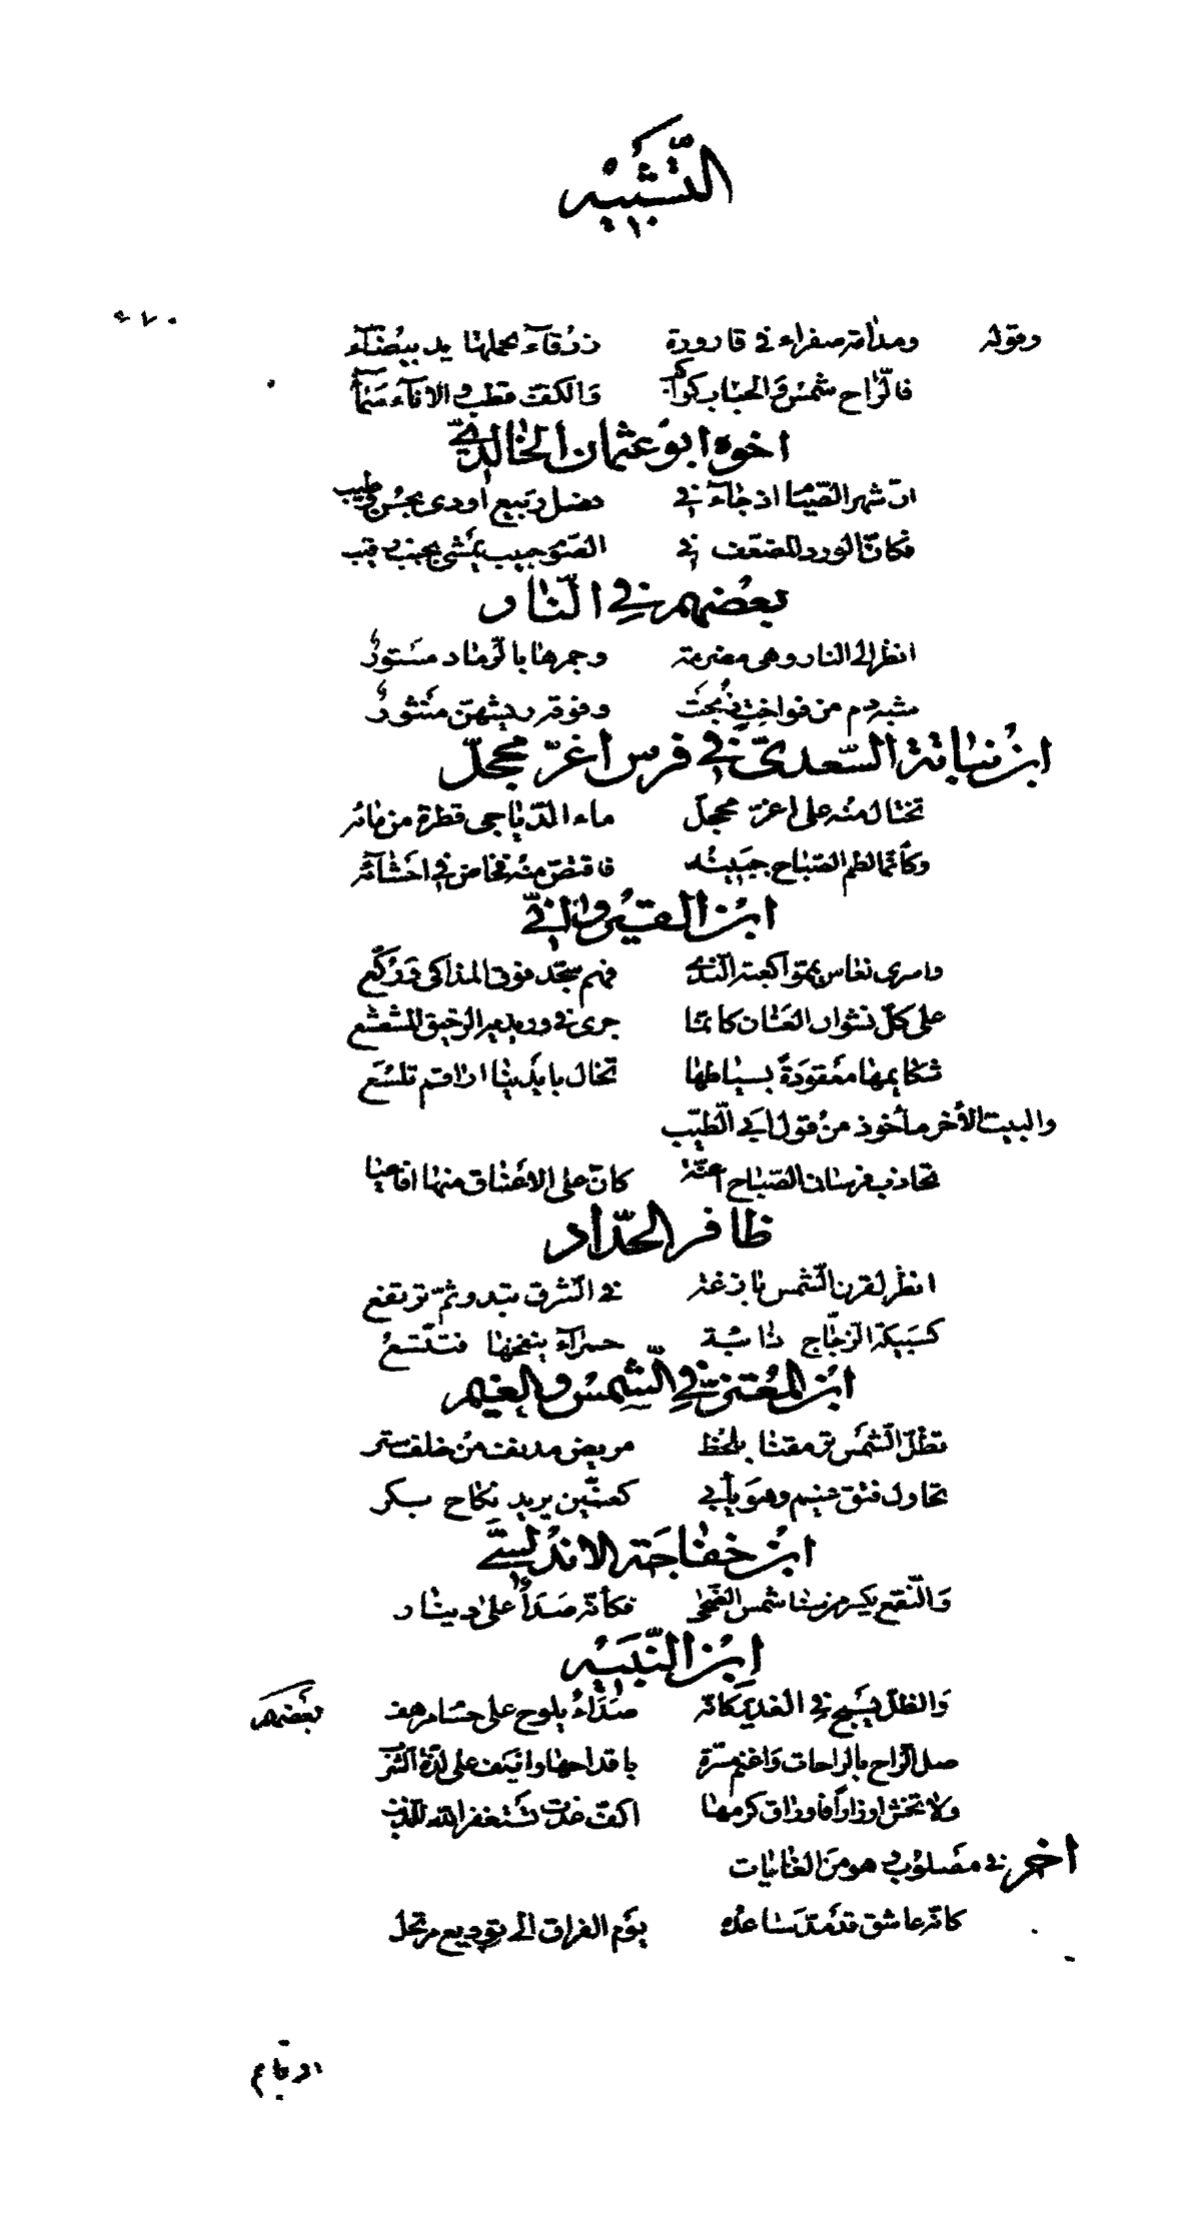 التَّشْبيه
٢٧٠
وقوله ومدامة صفراء في قارورة زرقآء تحملها يد بيضآء
فالرّاح شمس والحباب كواكب والكف قطب والاناء سمآء
اخوه ابو عثمان الخالديّ
انّ شهر الصّيام اذ جاء في فصل ربيع اودى بحسن وطيب
فكانّ الورد المضعّف في الصوم حبيب يمشي بجنب رقيب
بعضهم في النّار
انظر الى النار وهي مضرمة وجمرها بالرّماد مستورُ
شبه دم من فواخت ذُبحت وفوقه ريشهنّ منثورُ
ابن نباتة السّعديّ في فرس اغرّ محجّل
تختال منه على اغرّ محجّل ماء الدّياجي قطرة من مائه
وكأنّما لطم الصّباح جبينه فاقتصّ منه فخاض في احشائه
ابن القيروانيّ
واسرى نعاس يمّموا كعبة النّدى فهم سجّد فوق المذاكي وركّع
على كلّ نشوان العنان كانّما جرى في وريديه الرّحيق المشعشع
شكايمها معقودة بسياطها تخال بايديها اراقم تلسع
والبيت الأخر مأخوذ من قول ابي الطّيّب
تجاذب فرسان الصّباح اعنّة كانّ على الاعناق منها افاعيا
ظافر الحدّاد
انظر لقرن الشّمس بازغة في الشّرق تبدو ثمّ ترتفع
كسبيكة الزّجّاج ذائبة حمرآء ينفخها فتتّسعُ
ابن المُعتزّ في الشّمس والغيم
تظلّ الشّمس ترمقنا بلحظ مريض مدنف من خلف ستر
تحاول فتق غيم وهو يأبى كعنّين يريد نكاح بكر
ابن خفاجة الاندلسيّ
والنّقع يكسر من سنا شمس الضّحى فكأنّه صدأ على دينار
ابن النّبيه
والظلّ يسبح في الغدير كانّه صدأ يلوح على حسام مرهف بعضهم
صل الرّاح بالراحات واغنم مسرّة باقداحها واعكف على لذّة الشّرب
ولا تخش اوزاراً فاوراق كرمها اكفّ غدت تستغفر الله للذنب
اخر في مصلوب وهو من الغايات
كانّه عاشق قد مدّ ساعده يوم الفراق الى توديع مرتحل